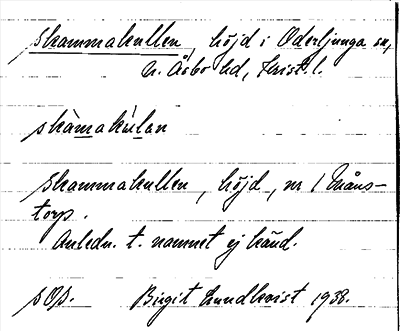 Skammakullen, höjd i Oderljunga sn,
N. Åsbo hd, Krist. l.
skàmakùlan
Skammakullen, höjd, nr 1 Måns-
torp.
Anledn. t. namnet ej känd.
sOp. Birgit Lundkvist 1938.